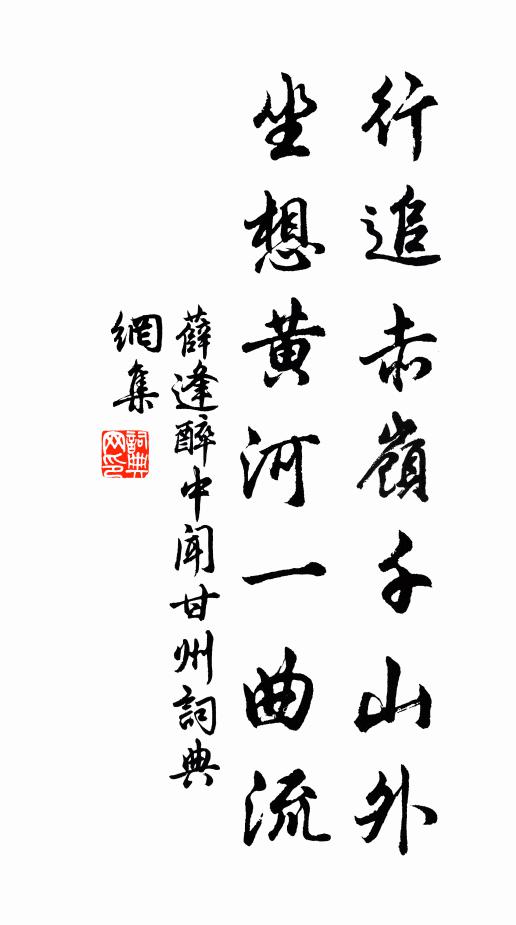 行追赤嶺千山外
坐想黄河一曲流
薛逢醉中聞甘州詞典
網集
詞典
网印